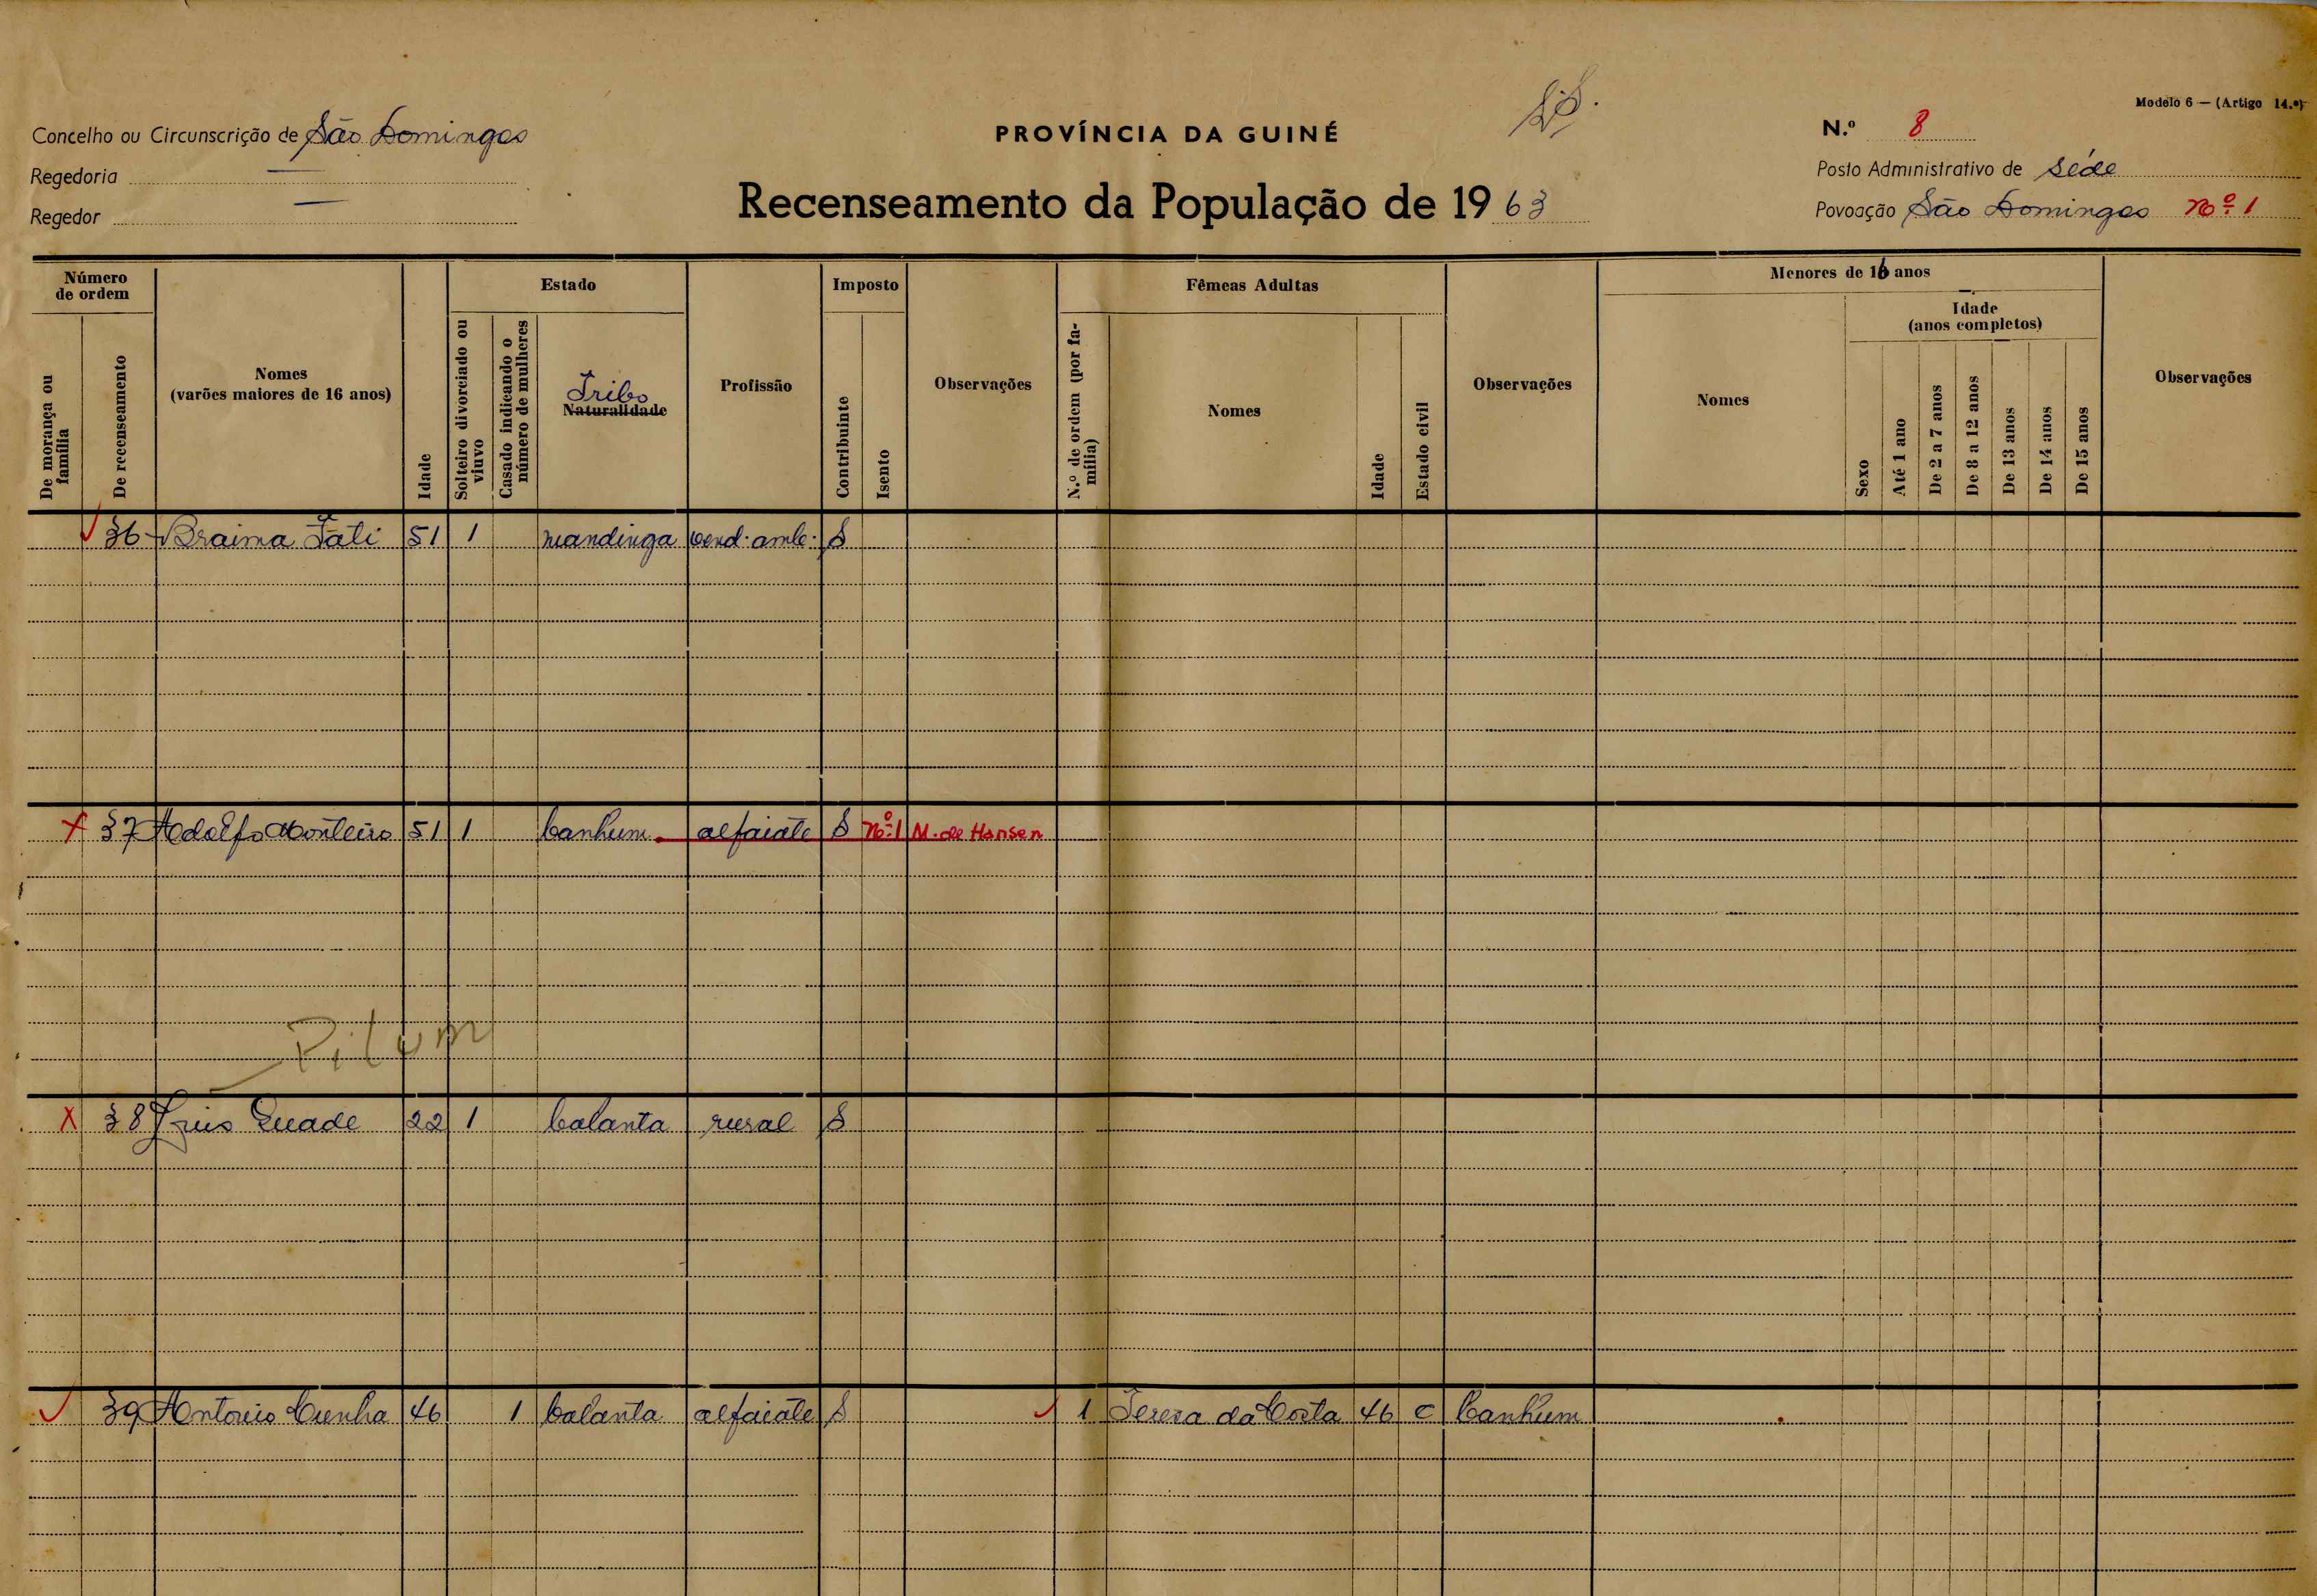 Modelo 6 — (Artigo 14.º)
Concelho ou Circunscrição de São Domingos
PROVÍNCIA DA GUINÉ
N.º 8
Regedoria —
Posto Administrativo de Séde
Regedor —
Recenseamento da População de 1963
Povoação São Domingos Nº 1
Número de ordem
De morança ou família
De recenseamento
Nomes
(varões maiores de 16 anos)
Idade
Estado
Solteiro divorciado ou viuvo
Casado indicando o número de mulheres
Tribo
Naturalidade
Profissão
Imposto
Contribuinte
Isento
Observações
Fêmeas Adultas
N.º de ordem (por família)
Nomes
Idade
Estado civil
Observações
Menores de 16 anos
Nomes
Sexo
Idade
(anos completos)
Até 1 ano
De 2 a 7 anos
De 8 a 12 anos
De 13 anos
De 14 anos
De 15 anos
Observações
36 Braima Fati 51 1 mandinga vend. amb. S
37 Adolfo Monteiro 51 1 banhum alfaiate S Nº 1 M. de Hansen
Pilum
38 Luis Quade 22 1 balanta rural S
39 Antonio Cunha 46 1 balanta alfaiate S 1 Teresa da Costa 46 C banhum